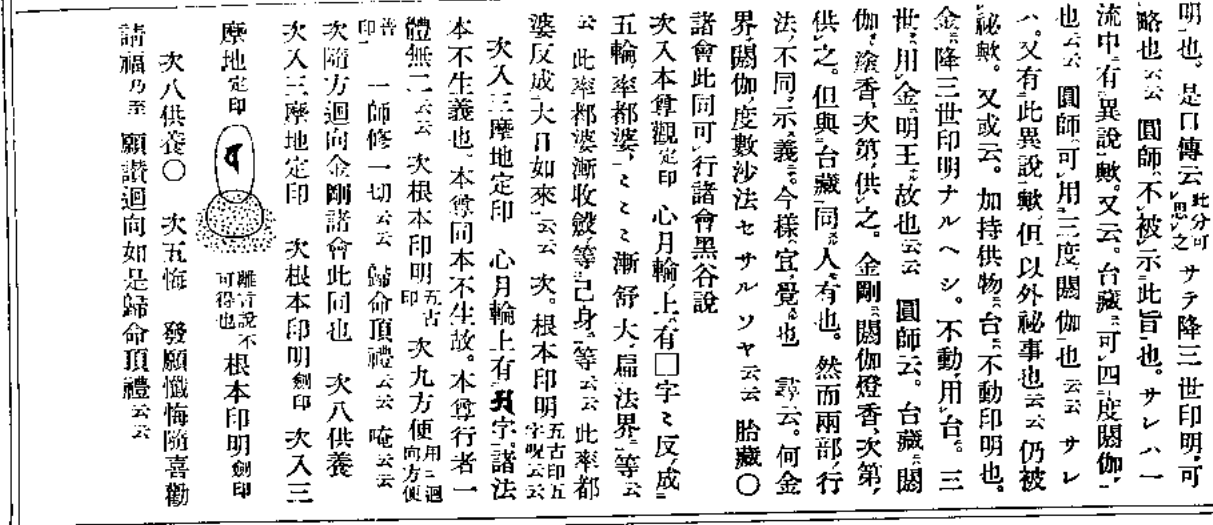 明也。是口傳云此分可思之サテ降三世印明、可
略也云云 圓師、不被示此旨也。サレハ一
流中、有異說歟。又云。台藏、可四度閼伽
也云云 圓師、可用三度閼伽也云云 サレ
ハ、又有此異說歟、但以外祕事也云云 仍被
祕歟。又或云。加持供物、台、不動印明也。
金、降三世印明ナルヘシ。不動、用台。三
世、用金、明王、故也云云 圓師云。台藏、閼
伽、塗香、次第、供之。金剛、閼伽燈香、次第、
供之。但與台藏同、人有也。然而兩部、行
法、不同、示義。今樣、宜覺也 尋云。何金
界、閼伽、度數沙法セサルソヤ云云 胎藏〇
諸會此同可行諸會黑谷說
次入本尊觀定印 心月輪、上有□字〻反成
五輪、率都婆、〻〻〻漸舒大、扁法界、等云
云 此率都婆漸收斂、等己身、等云云 此率都
婆反成大日如來、云云 次。根本印明五古印五字呪云云
次入三摩地定印 心月輪上有字、諸法
本不生義也、本尊同本不生故。本尊行者一
體無二云云 次根本印明五古印 次九方便用三迴向方便
普印 一師修一切云云 歸命頂禮云云 唵云云
次隨方迴向金剛諸會此同也 次八供養
次入三摩地定印 次根本印明劍印 次入三
摩地定印 離言說不可得也 根本印明劍印
次八供養〇 次五悔 發願懺悔隨喜勸
請福乃至 願讚迴向如是歸命頂禮云云